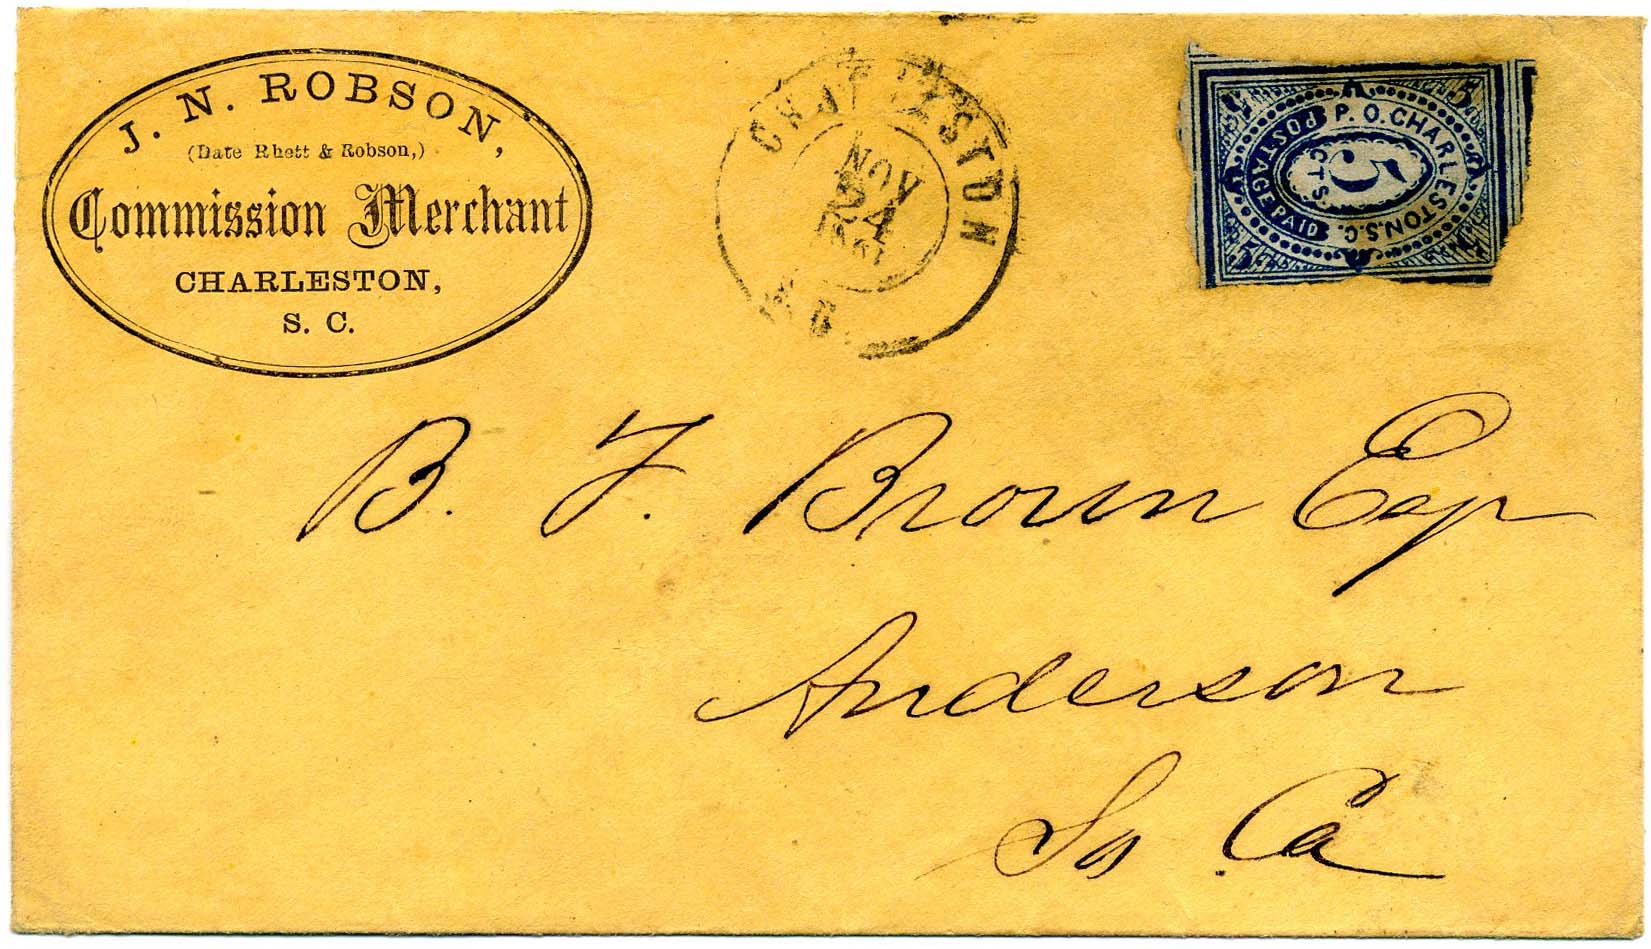 J. N. ROBSON,
(Date Rhett & Robson,)
Commission Merchant
CHARLESTON,
S. C.
CHARLESTON
NOV
24
1861
S.C.
P. O. CHARLESTON. S. C.
POSTAGE PAID
5
CTS
5
5
5
5
B. F. Brown Esqr
Anderson
So Ca